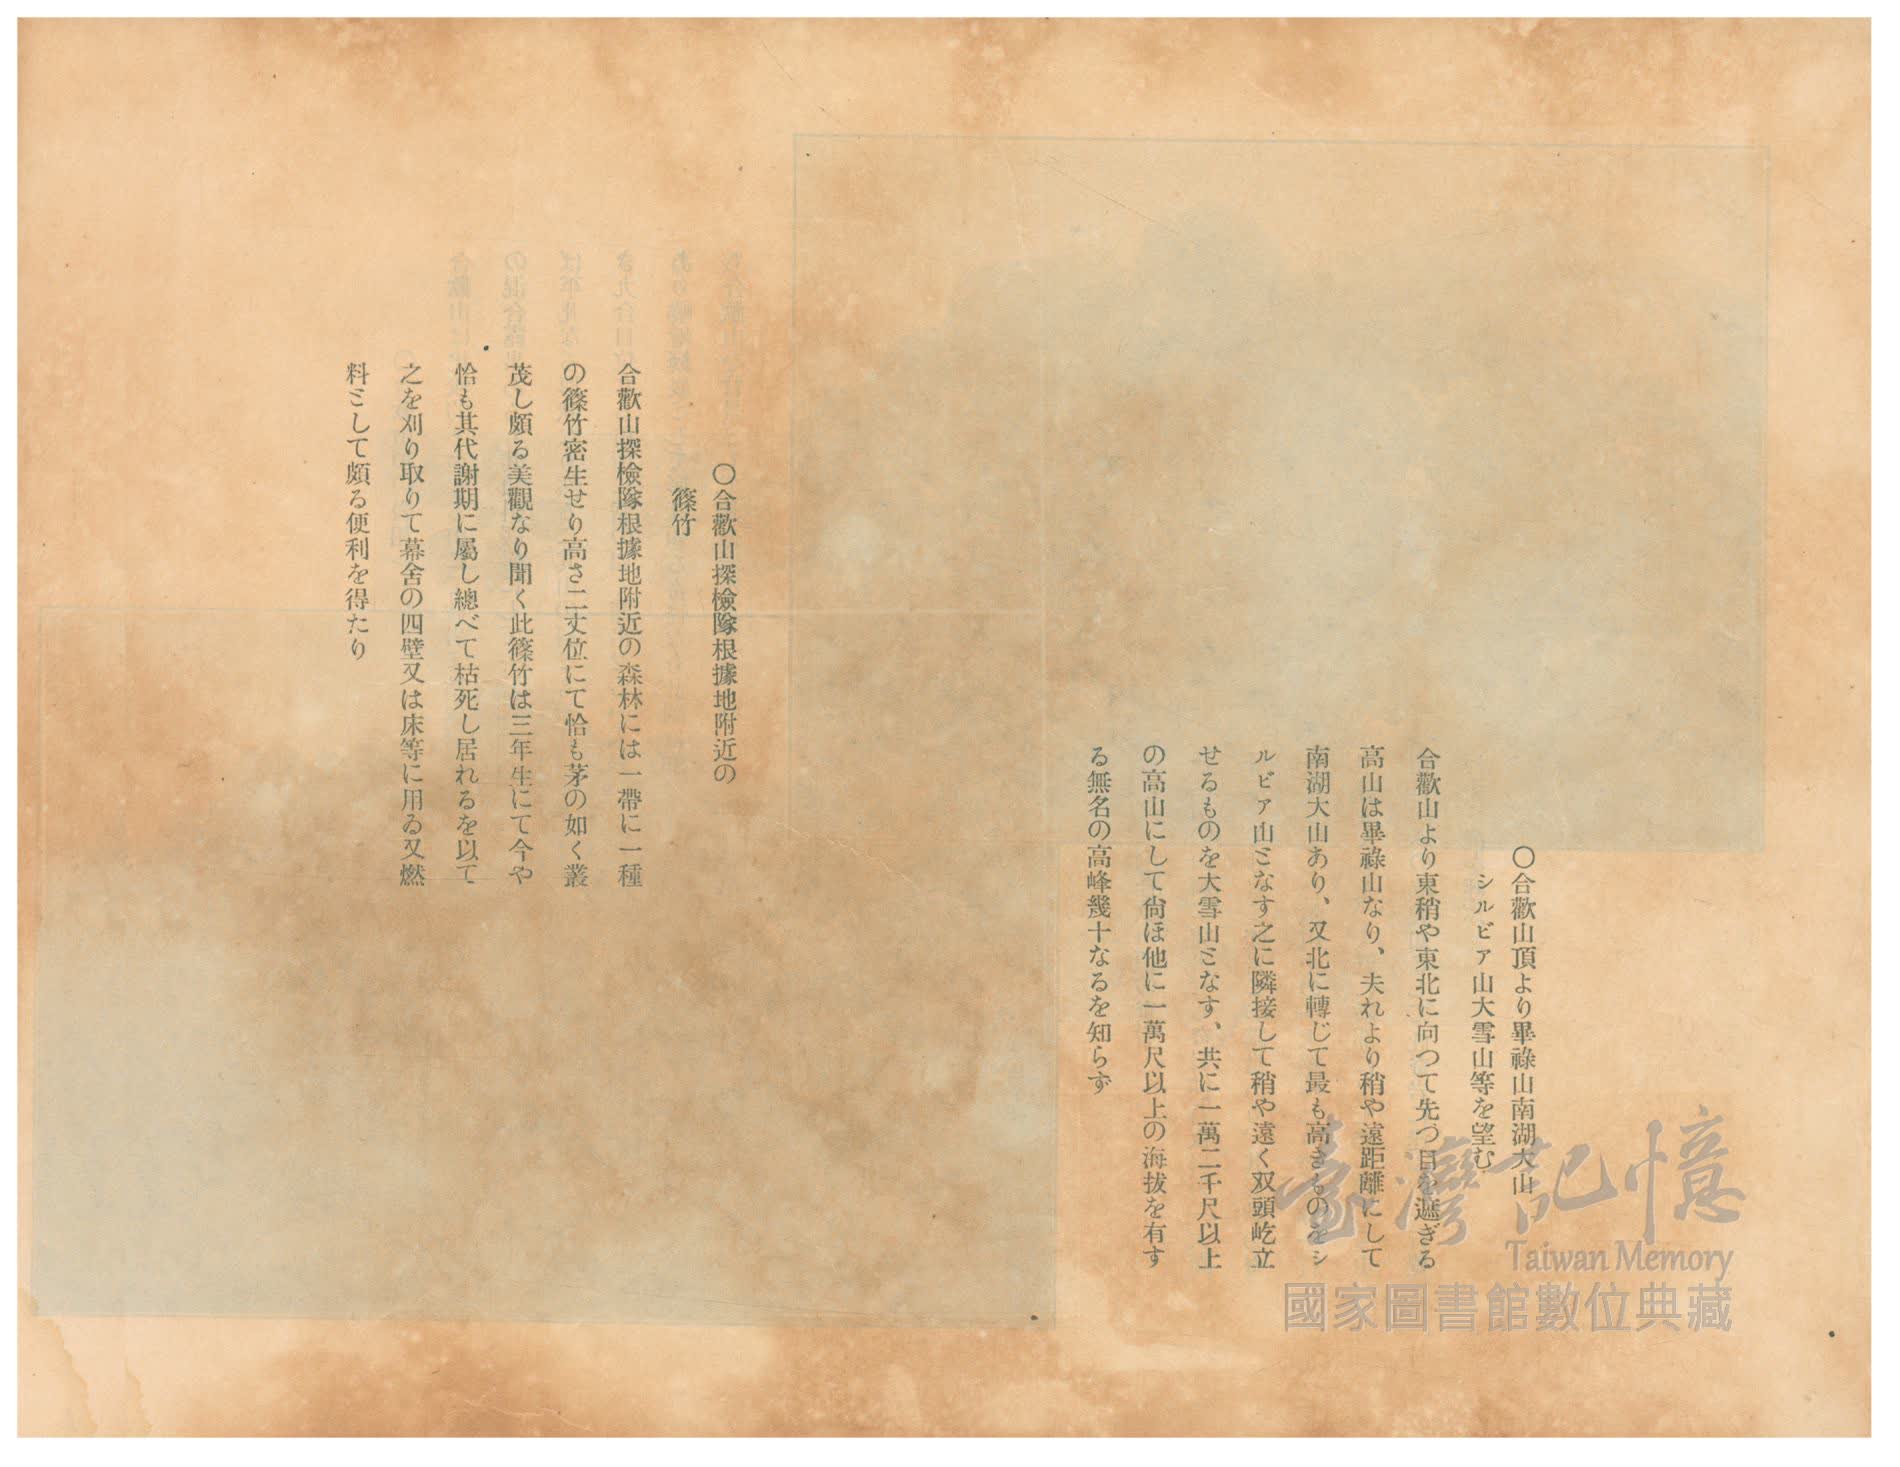 〇合歡山頂より畢祿山南湖大山
シルビア山大雪山等を望む
合歡山より東稍や東北に向つて先づ目を遮ぎる
高山は畢祿山なり、夫れより稍や遠距離にして
南湖大山あり、又北に轉じて最も高きものをシ
ルビア山となす之に隣接して稍や遠く双頭屹立
せるものを大雪山となす、共に一萬二千尺以上
の高山にして尙ほ他に一萬尺以上の海拔を有す
る無名の高峰幾十なるを知らず
〇合歡山探檢隊根據地附近の
篠竹
合歡山探檢隊根據地附近の森林には一帶に一種
の篠竹密生せり高さ二丈位にて恰も茅の如く叢
茂し頗る美觀なり聞く此篠竹は三年生にて今や
恰も其代謝期に屬し總べて枯死し居れるを以て
之を刈り取りて幕舍の四壁又は床等に用ゐ又燃
料として頗る便利を得たり
臺灣記憶
Taiwan Memory
國家圖書館數位典藏